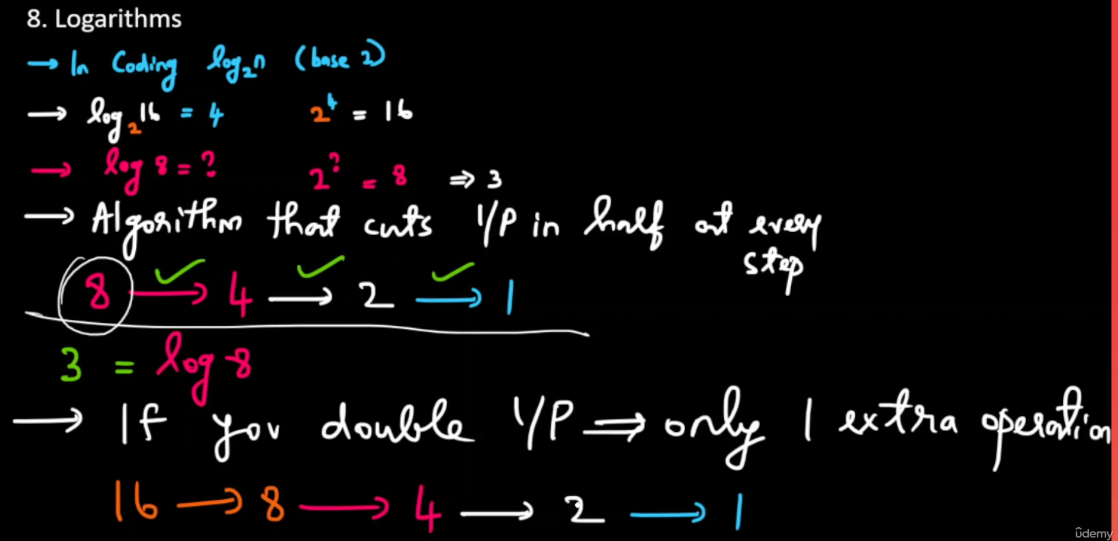 8. Logarithms
→ In Coding log₂n (base 2)
→ log₂16 = 4 2⁴ = 16
→ log 8 = ? 2^? = 8 ⇒ 3
→ Algorithm that cuts I/P in half at every
step
8 → 4 → 2 → 1
3 = log 8
→ If you double I/P ⇒ only 1 extra operation
16 → 8 → 4 → 2 → 1
ûdemy